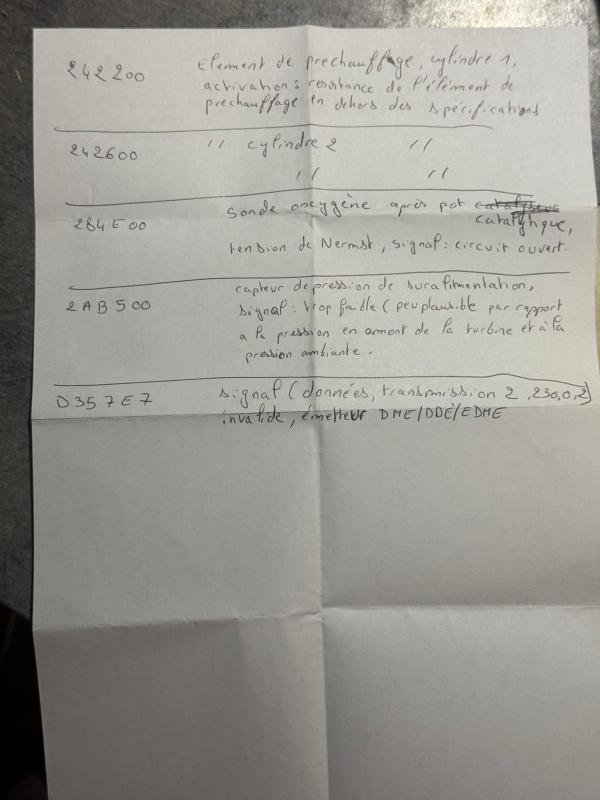 242200 Element de prechauffage, cylindre 1,
activation : resistance de l'élément de
prechauffage en dehors des spécifications
242600 " cylindre 2 "
" "
284E00 Sonde oxygène après pot catalyseur
catalytique,
tension de Nernst, signal : circuit ouvert.
2AB500 capteur de pression de suralimentation,
signal : trop faible (peu plausible par rapport
a la pression en amont de la turbine et à la
pression ambiante.
D357E7 signal (données, transmission 2, 230,0,2)
invalide, émetteur DME/DDE/EDME